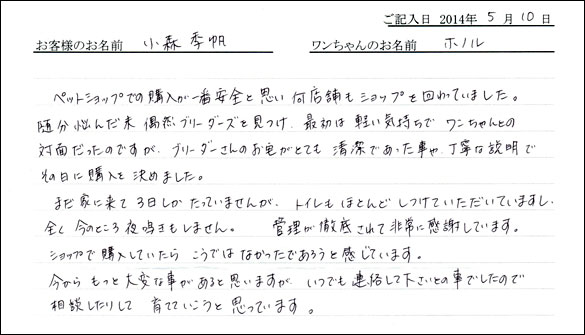 ご記入日 2014年 5月 10日
お客様のお名前 小森季帆 ワンちゃんのお名前 ホノル
ペットショップでの購入が一番安全と思い何店舗もショップを回わっていました。
随分悩んだ末 偶然ブリーダーズを見つけ、最初は軽い気持ちで ワンちゃんとの
対面だったのですが、ブリーダーさんのお宅がとても 清潔であった事や、丁寧な説明で
その日に購入を決めました。
まだ家に来て 3日しかたっていませんが、トイレもほとんどしつけていただいていますし、
全く今のところ夜鳴きもしません。 管理が徹底されて非常に感謝しています。
ショップで購入していたら こうではなかったであろうと感じています。
今から もっと大変な事があると思いますが、いつでも連絡して下さいとの事でしたので
相談したりして 育てていこうと思っています。